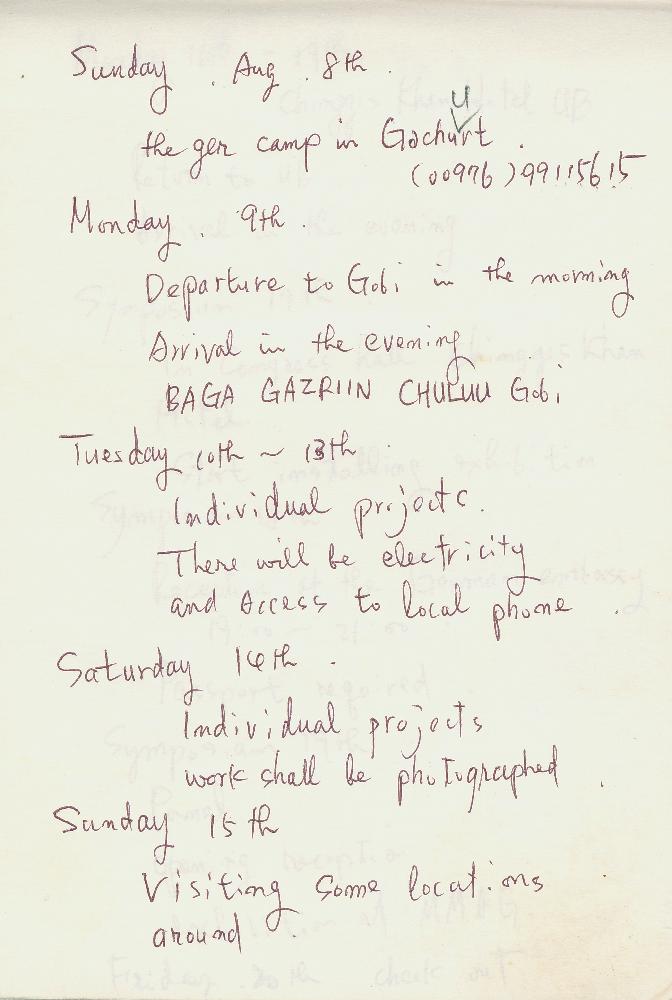 Sunday . Aug . 8th .
the ger camp in Gachuurt .
(00976) 99115615
Monday . 9th .
Departure to Gobi in the morning
Arrival in the evening
BAGA GAZRIIN CHULUU Gobi
Tuesday 10th ~ 13th .
Individual projects .
There will be electricity
and access to local phone .
Saturday 14th .
Individual projects
work shall be photographed .
Sunday 15th
Visiting some locations
around .